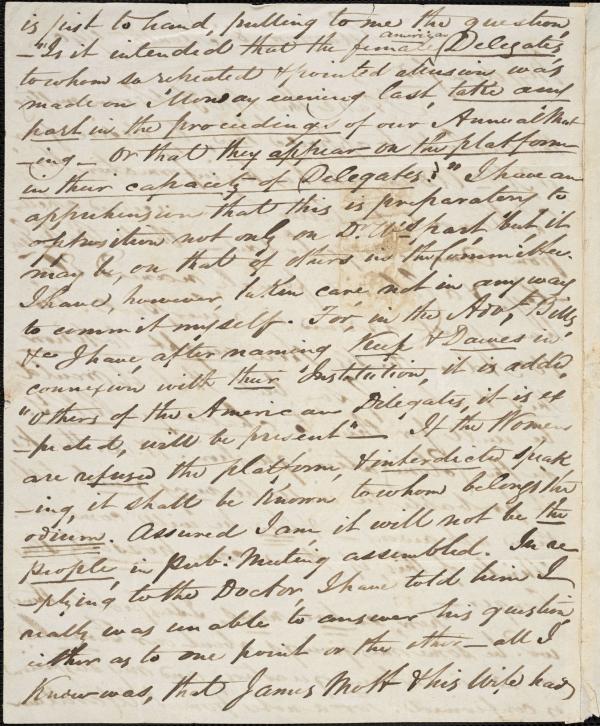 is just to hand, putting to me the question,
— "Is it intended that the female american Delegates
to whom so repeated & pointed allusion was
made on Monday evening last, take any
part in the proceedings of our Annual Meet
-ing — or that they appear on the platform
in their capacity of Delegates?" I have an
apprehension that this is preparatory to
opposition not only on Dr C's part but it
may be, on that of others in the Committee.
I have, however, taken care, not in any way
to commit myself. For, in the Advt, Bills,
&c I have, after naming Keep & Dawes in
connexion with their Institution, it is added,
"others of the American Delegates, it is ex
-pected, will be present" — If the Women
are refused the platform, & interdicted speak
-ing, it shall be known to whom belongs the
odium. Assured I am, it will not be the
people, in Pub: Meeting assembled. In re
-plying to the Doctor, I have told him I
really was unable to answer his question
either as to one point or the other — all I
knew was, that James Mott & his Wife had